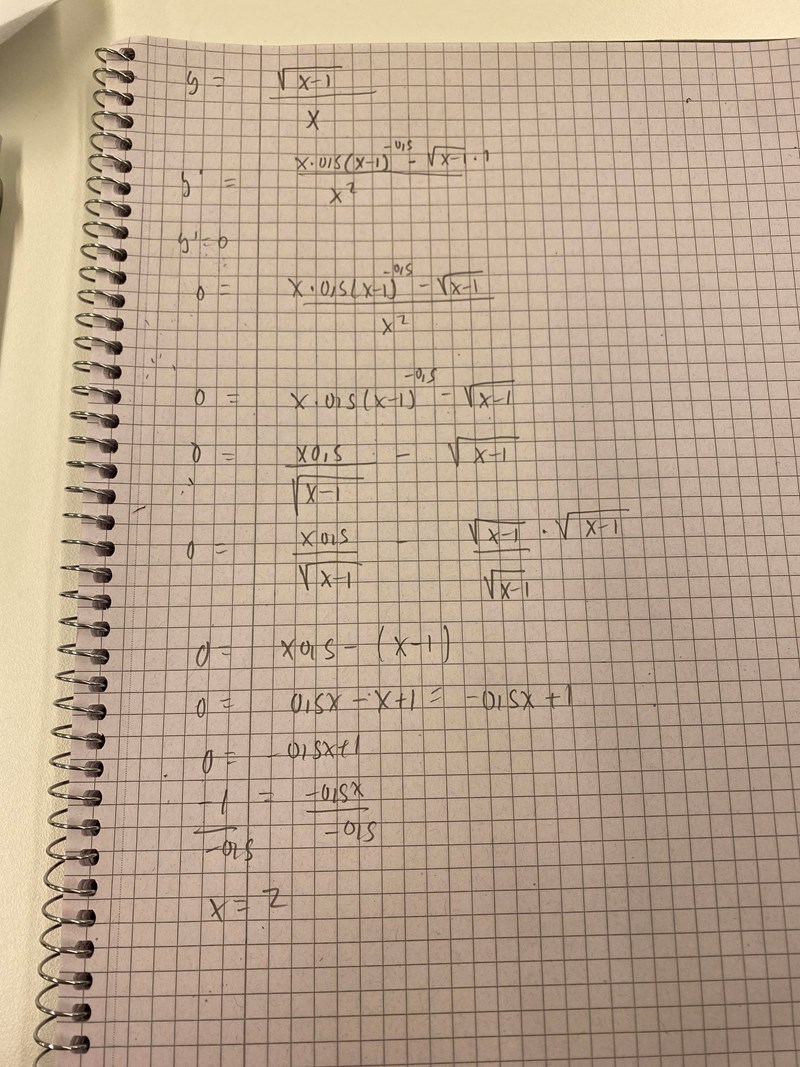 y = √(x-1) / x
y' = (x·0,5(x-1)^-0,5 - √(x-1)·1) / x²
y'=0
0 = (x·0,5(x-1)^-0,5 - √(x-1)) / x²
0 = x·0,5(x-1)^-0,5 - √(x-1)
0 = x0,5 / √(x-1) - √(x-1)
0 = x0,5 / √(x-1) - √(x-1) / √(x-1) · √(x-1)
0 = x0,5 - (x-1)
0 = 0,5x - x+1 = -0,5x+1
0 = -0,5x+1
-1 / -0,5 = -0,5x / -0,5
x = 2